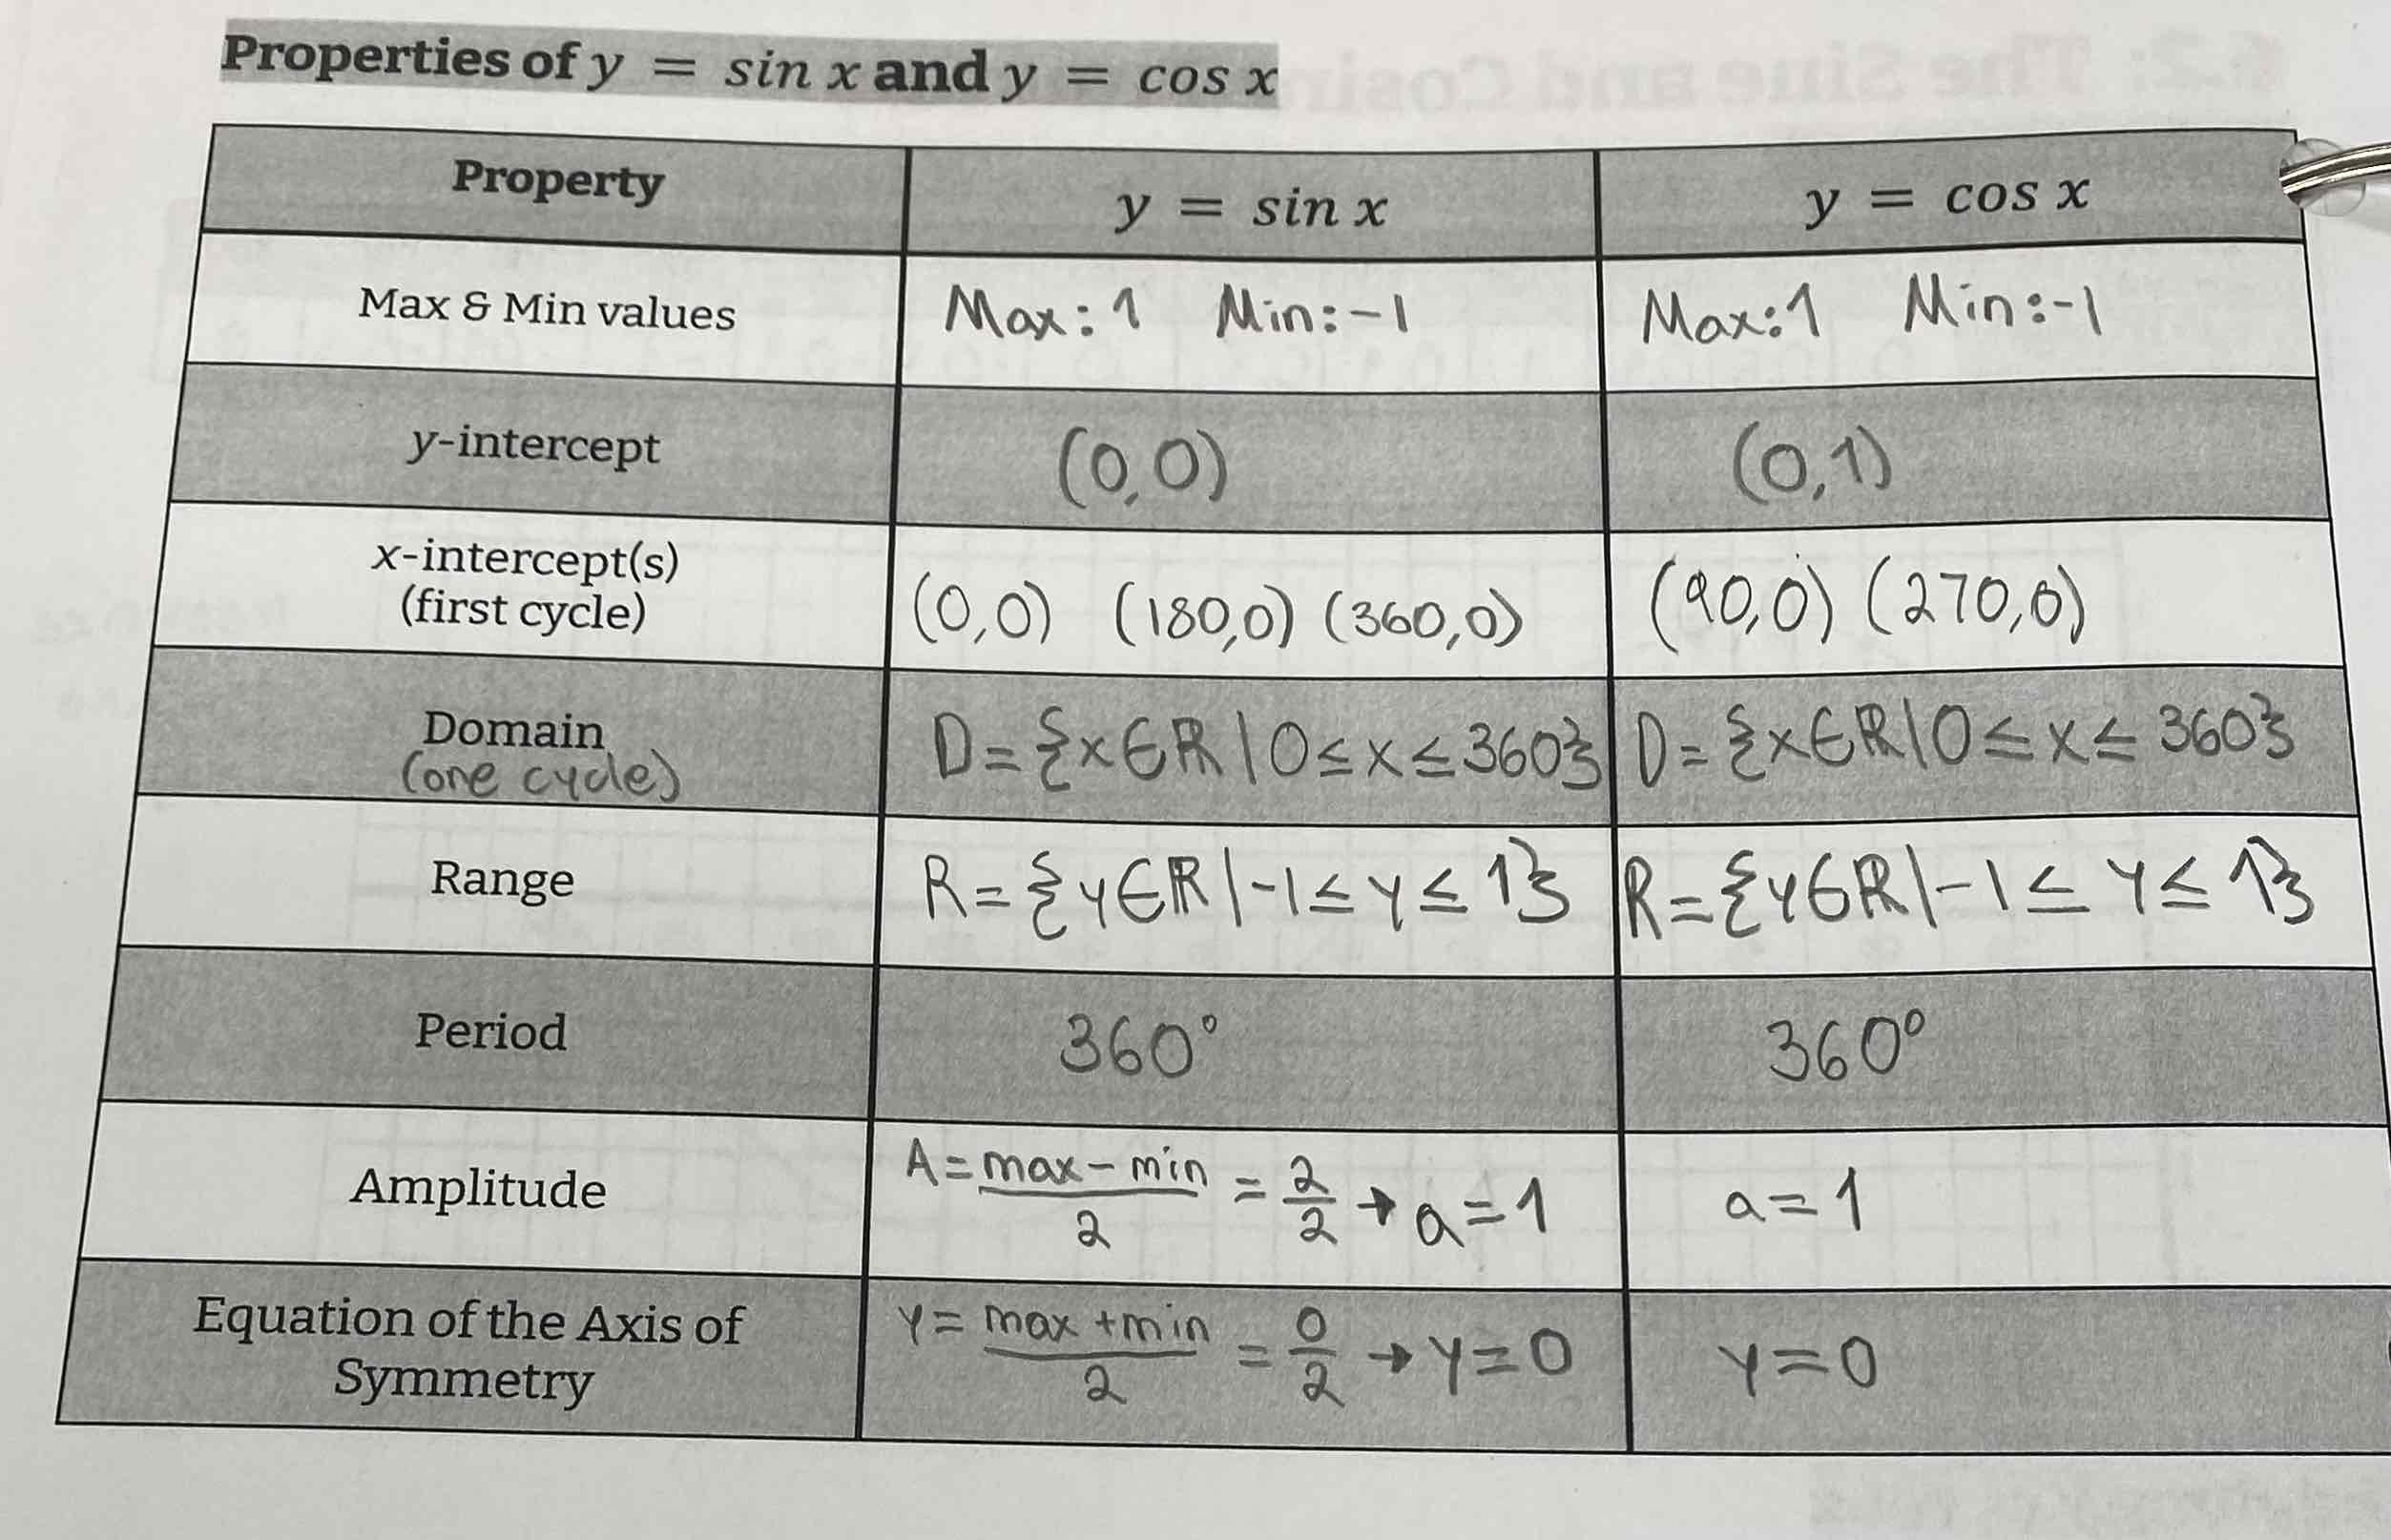 Properties of y = sin x and y = cos x
Property y = sin x y = cos x
Max & Min values Max: 1 Min: -1 Max: 1 Min: -1
y-intercept (0,0) (0,1)
x-intercept(s)
(first cycle) (0,0) (180,0) (360,0) (90,0) (270,0)
Domain
(one cycle) D = {x∈ℝ | 0 ≤ x ≤ 360} D = {x∈ℝ | 0 ≤ x ≤ 360}
Range R = {y∈ℝ | -1 ≤ y ≤ 1} R = {y∈ℝ | -1 ≤ y ≤ 1}
Period 360° 360°
Amplitude A = (max - min)/2 = 2/2 → a = 1 a = 1
Equation of the Axis of
Symmetry y = (max + min)/2 = 0/2 → y = 0 y = 0